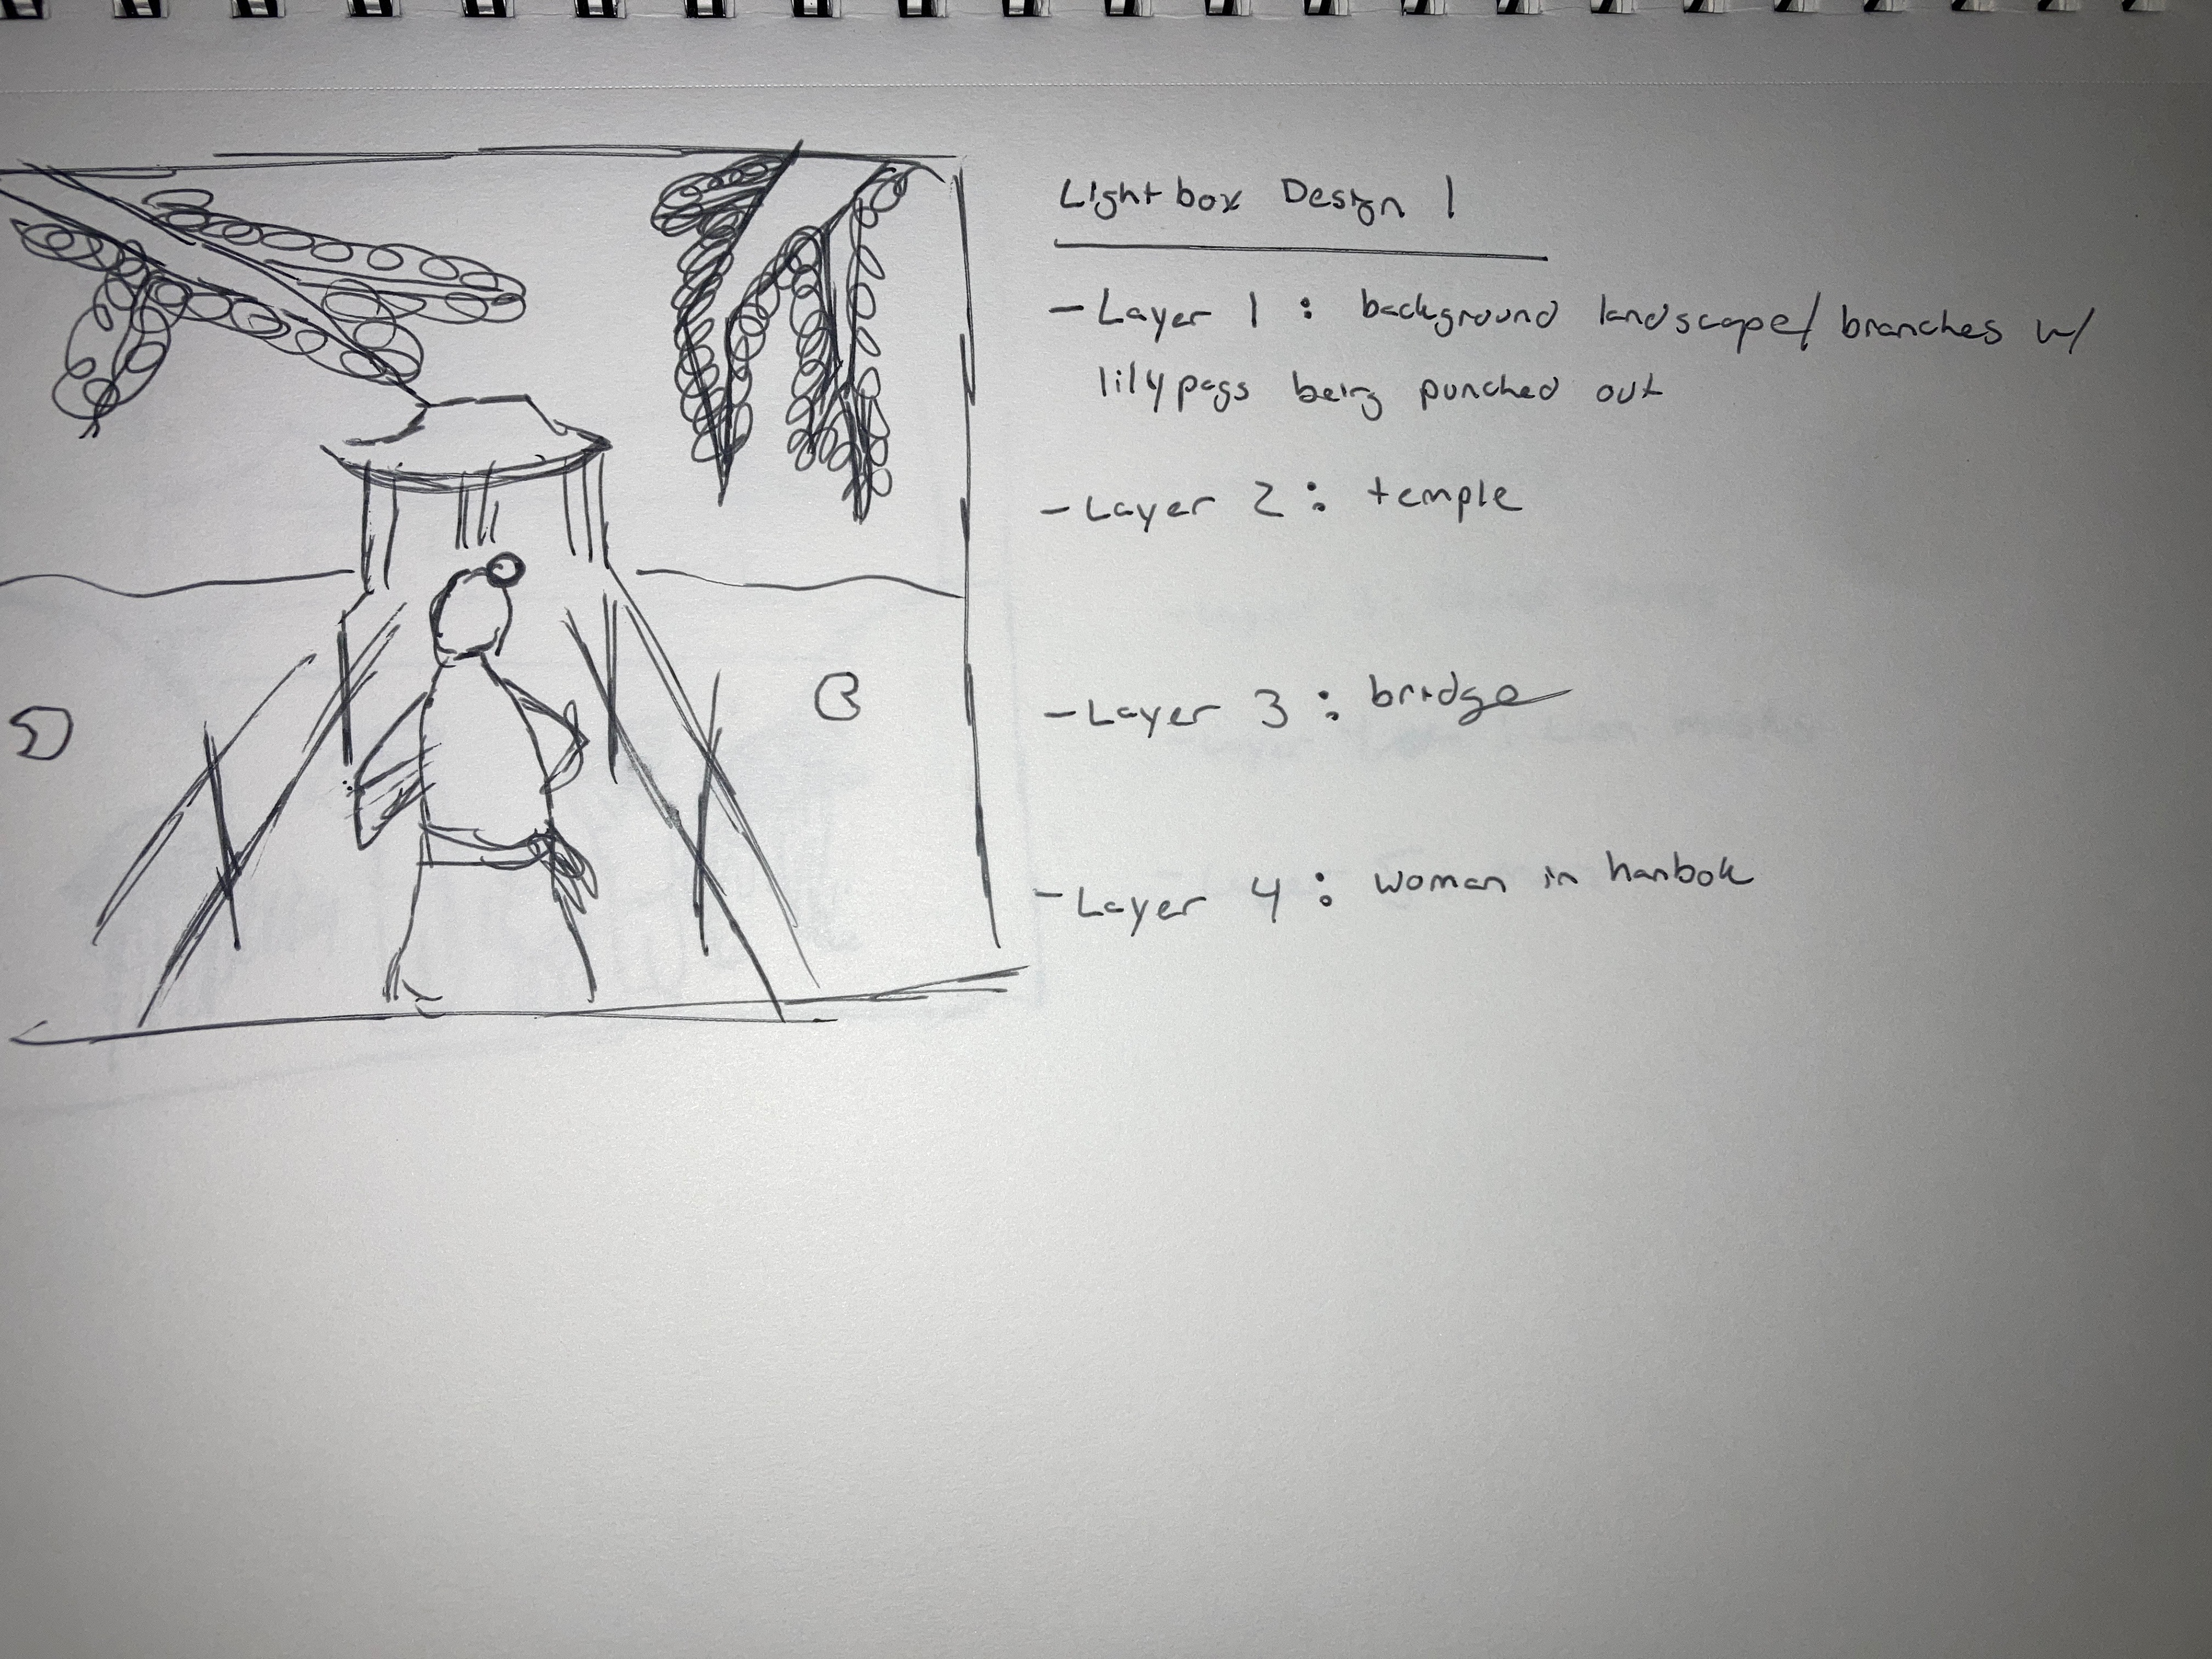 Lightbox Design 1
- Layer 1 : background landscape/ branches w/
lilypags being punched out
- Layer 2 : temple
- Layer 3 : bridge
- Layer 4 : woman in hanbok